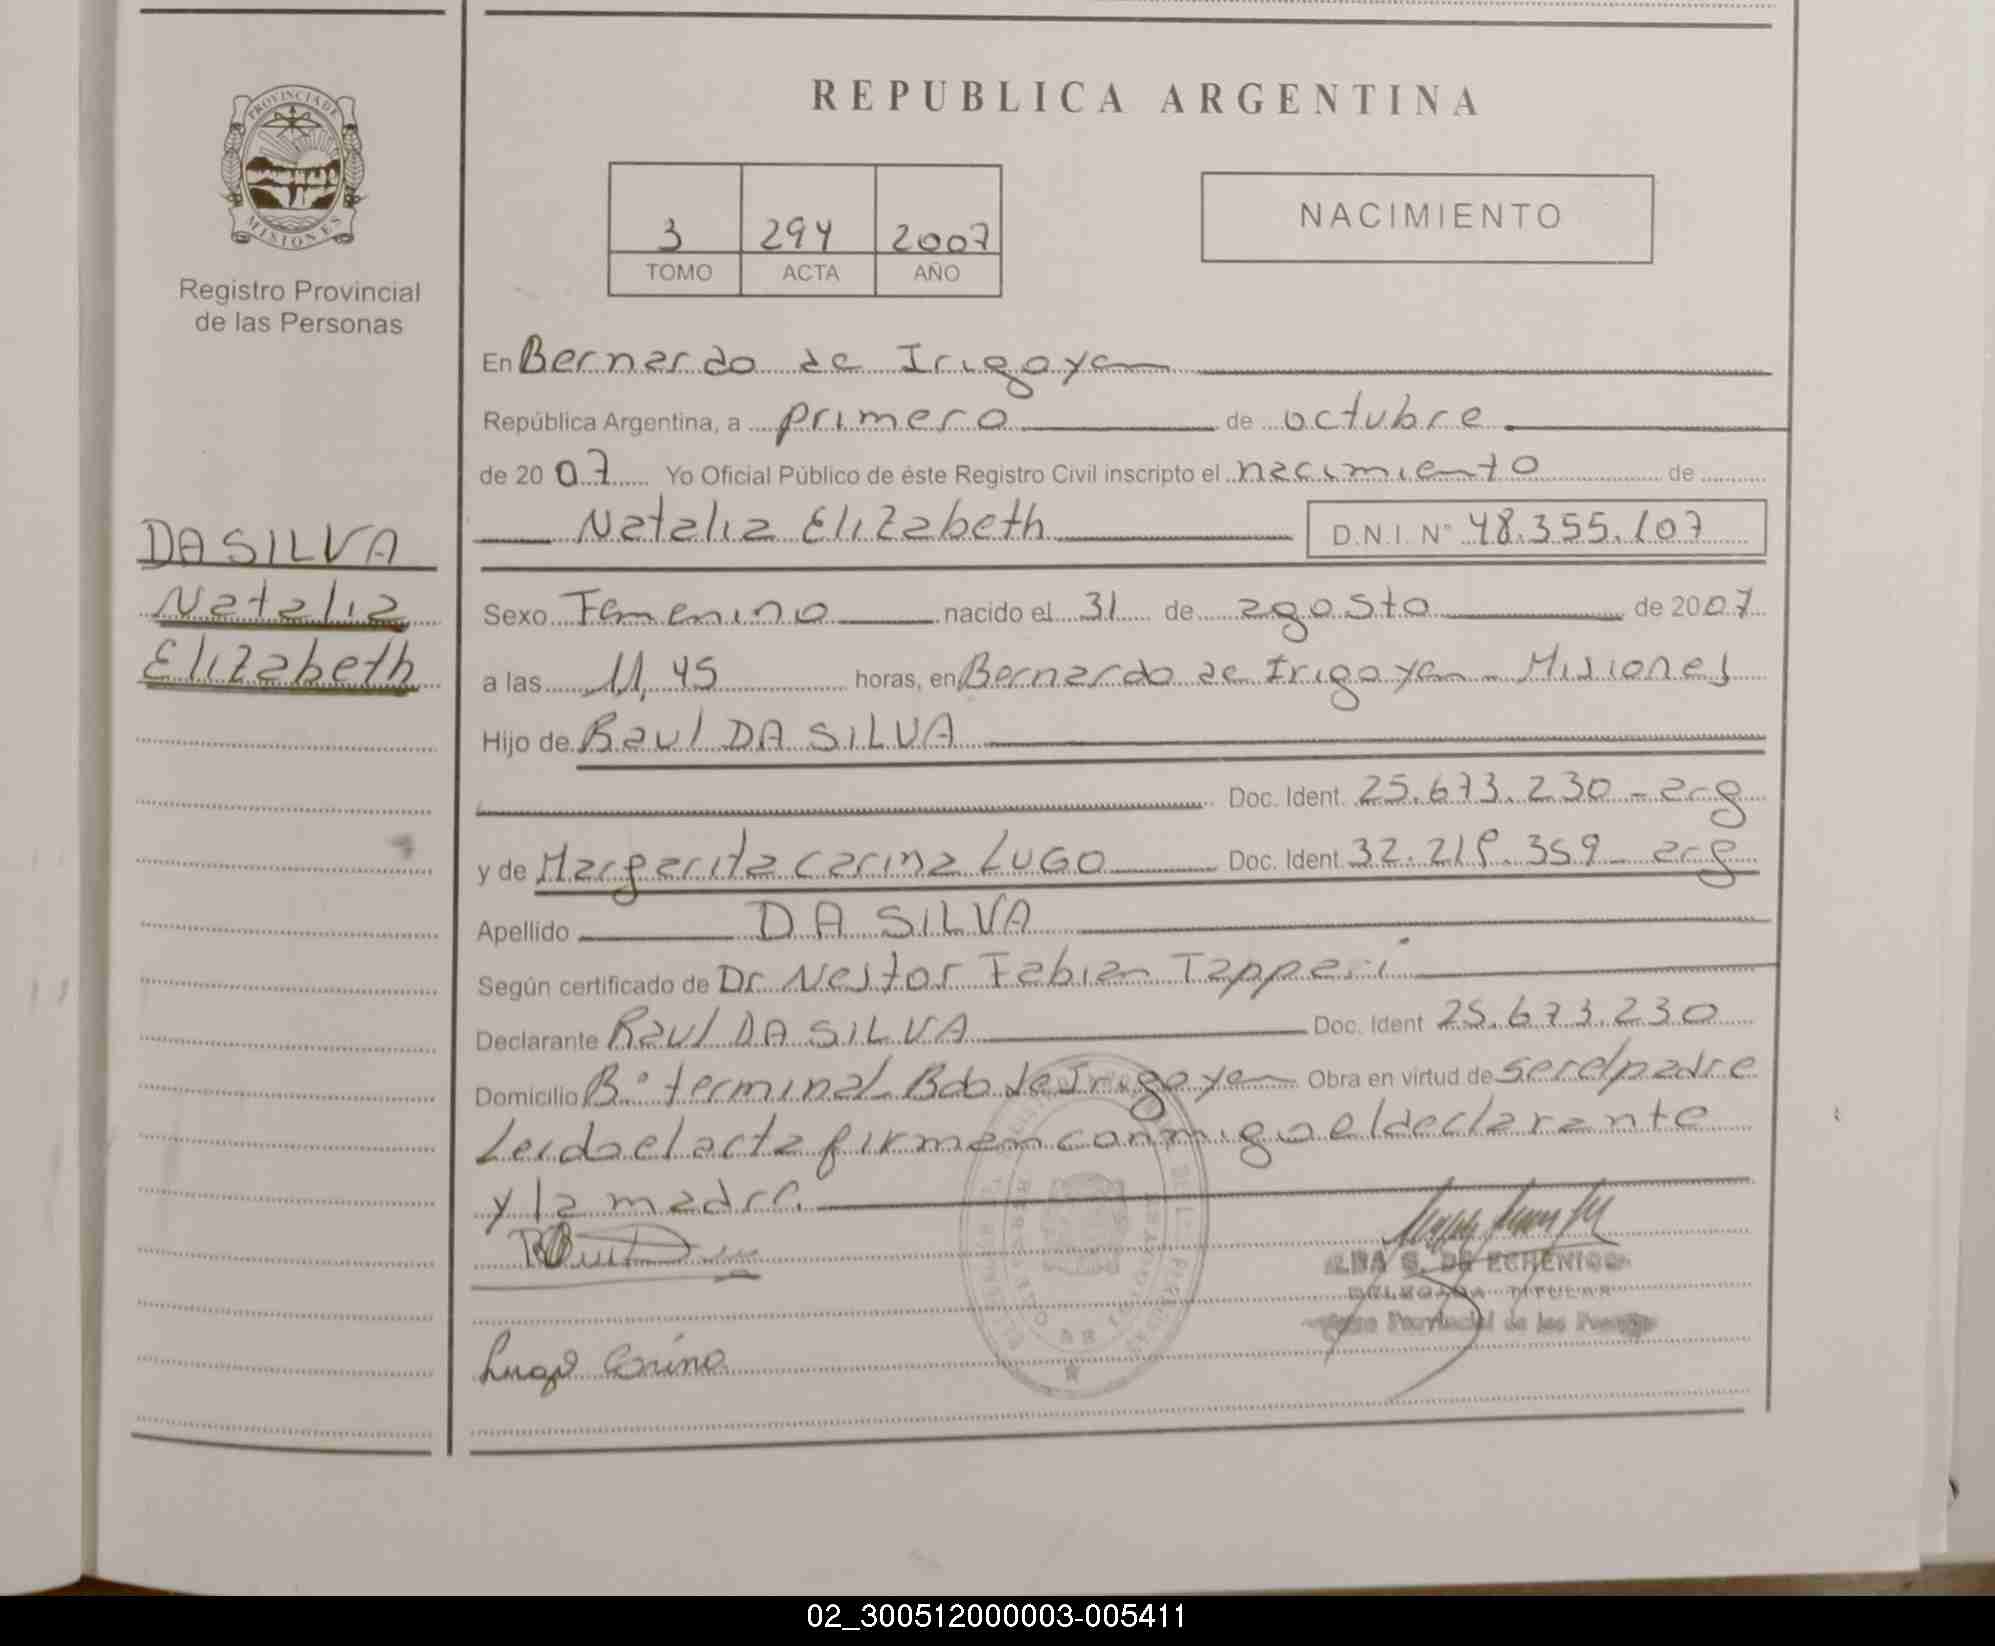 PROVINCIA DE
MISIONES
Registro Provincial
de las Personas
DA SILVA
Natalia
Elizabeth
REPUBLICA ARGENTINA
3 294 2007
TOMO ACTA AÑO
NACIMIENTO
En Bernardo de Irigoyen
República Argentina, a primero de octubre
de 2007 Yo Oficial Público de éste Registro Civil inscripto el nacimiento de
Natalia Elizabeth D.N.I. N° 48.355.107
Sexo Femenino nacido el 31 de agosto de 2007
a las 11,45 horas, en Bernardo de Irigoyen - Misiones
Hijo de Raul DA SILVA
Doc. Ident. 25.673.230 - arg
y de Margarita Carina LUGO Doc. Ident. 32.218.359 - arg
Apellido DA SILVA
Según certificado de Dr. Nestor Fabian Tappari
Declarante Raul DA SILVA Doc. Ident 25.673.230
Domicilio B° terminal Bdo de Irigoyen Obra en virtud de ser el padre
Leida el acta firman conmigo el declarante
y la madre.
S. DE ECHENIQUE
DELEGADA TITULAR
Provincial de las
Lugo Carina
02_300512000003-005411